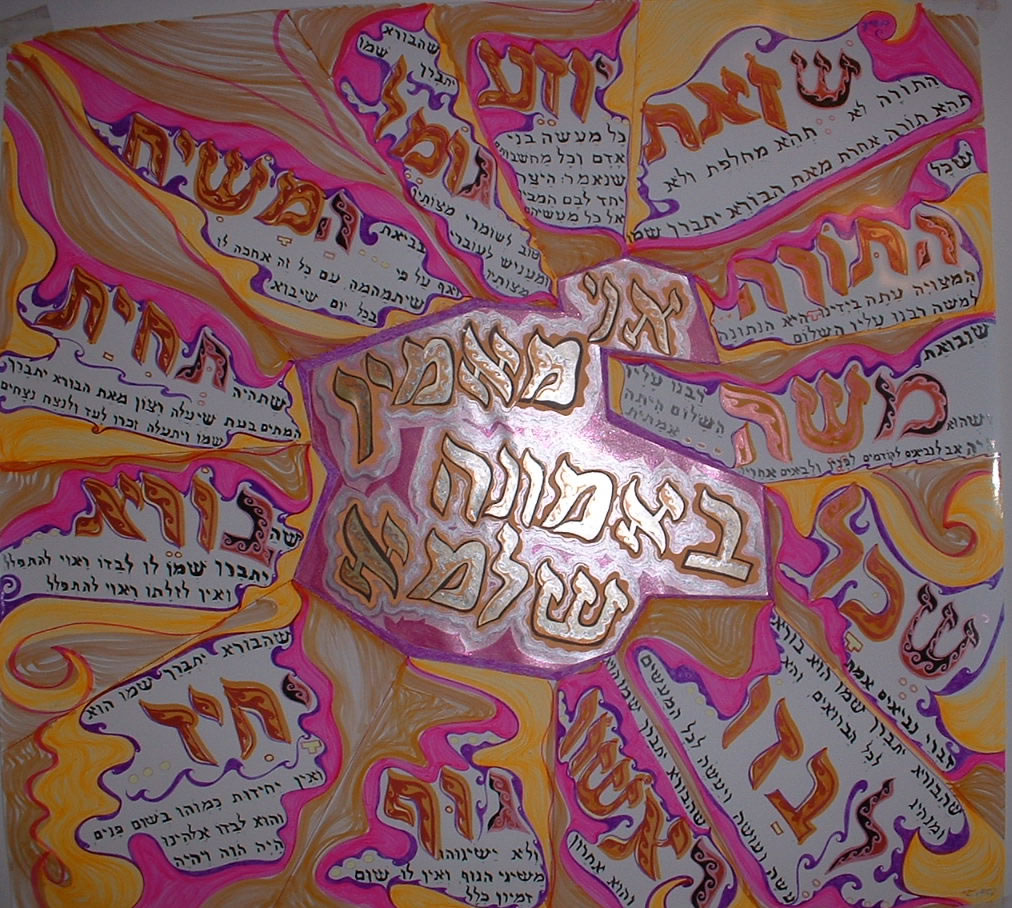 אני
מאמין
באמונה
שלמא
שזאת
התורה לא תהא מחלפת ולא
תהא תורה אחרת מאת הבורא יתברך שמו
שכל
התורה
המצויה עתה בידינו היא הנתונה
למשה רבנו עליו השלום
שנבואת
משה
רבנו עליו
השלום היתה
אמתית
ושהוא
היה אב לנביאים לקודמים לפניו ולבאים אחריו
שכל
דברי נביאים אמת
שהבורא יתברך שמו הוא בורא
ומנהיג לכל הברואים והוא
לבדו
עשה ועושה ויעשה לכל המעשים
שהבורא יתברך שמו הוא
ראשון
והוא אחרון
גוף
ולא ישיגוהו
משיגי הגוף ואין לו שום
דמיון כלל
שהבורא יתברך שמו הוא
יחיד
ואין יחידות כמוהו בשום פנים
והוא לבדו אלהינו
היה הוה ויהיה
שה
בורא
יתברך שמו לו לבדו ראוי להתפלל
ואין לזולתו ראוי להתפלל
תחית
המתים בעת שיעלה רצון מאת הבורא יתברך
שמו ויתעלה זכרו לעד ולנצח נצחים
שתהיה
המשיח
בביאת
ואף על פי
שיתמהמה עם כל זה אחכה לו
בכל יום שיבוא
שהבורא
יתברך שמו
גומל
טוב לשומרי מצותיו
ומעניש לעוברי
מצותיו
יודע
כל מעשה בני
אדם וכל מחשבותם
שנאמר: היצר
יחד לבם המבין
אל כל מעשיהם